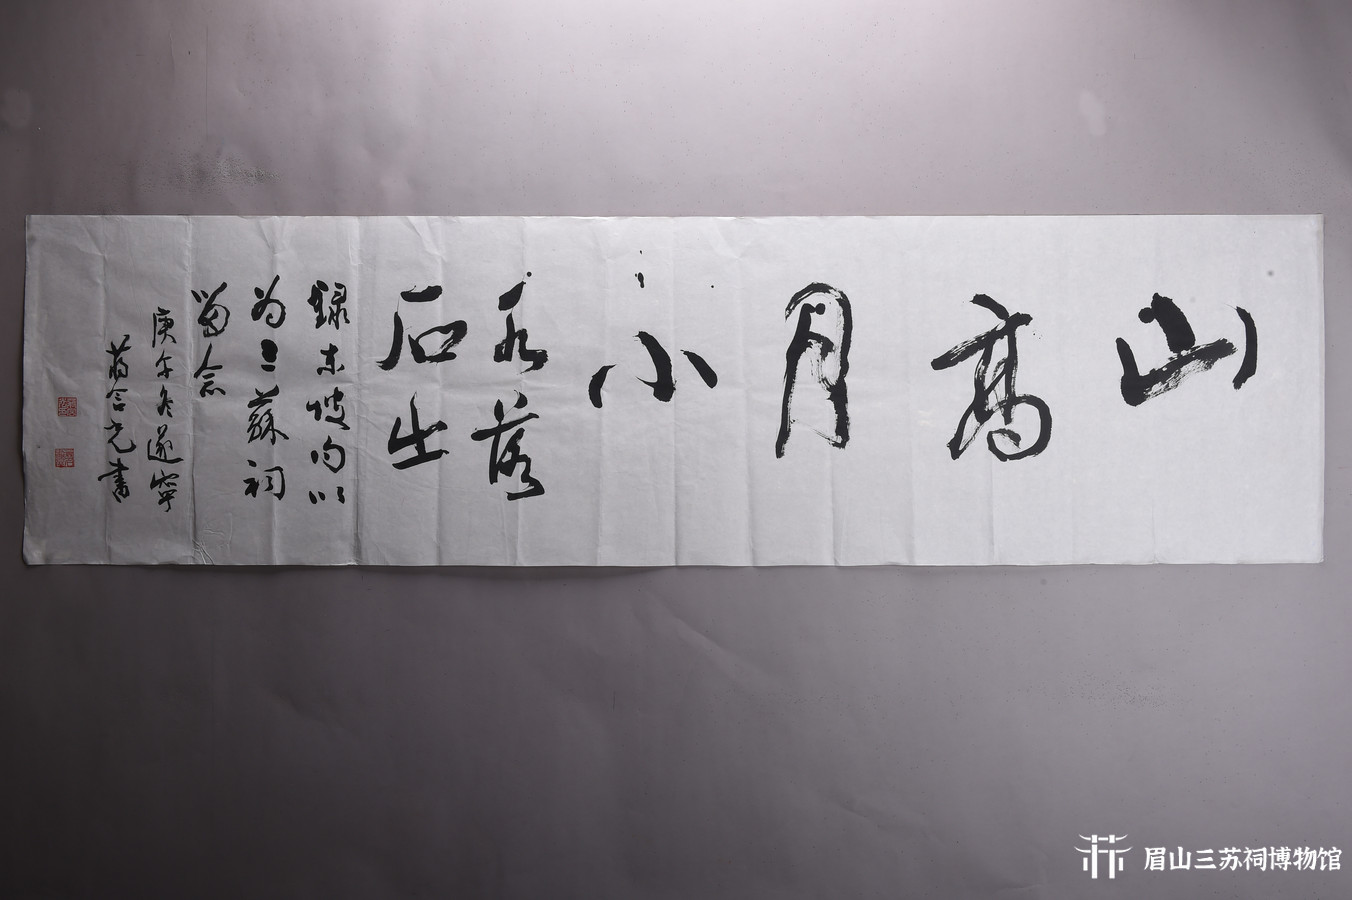 山高月小
水落
石出
録东坡句以
为三蘇祠
留念
庚午冬遂寧
蒋合光書
眉山三苏祠博物馆